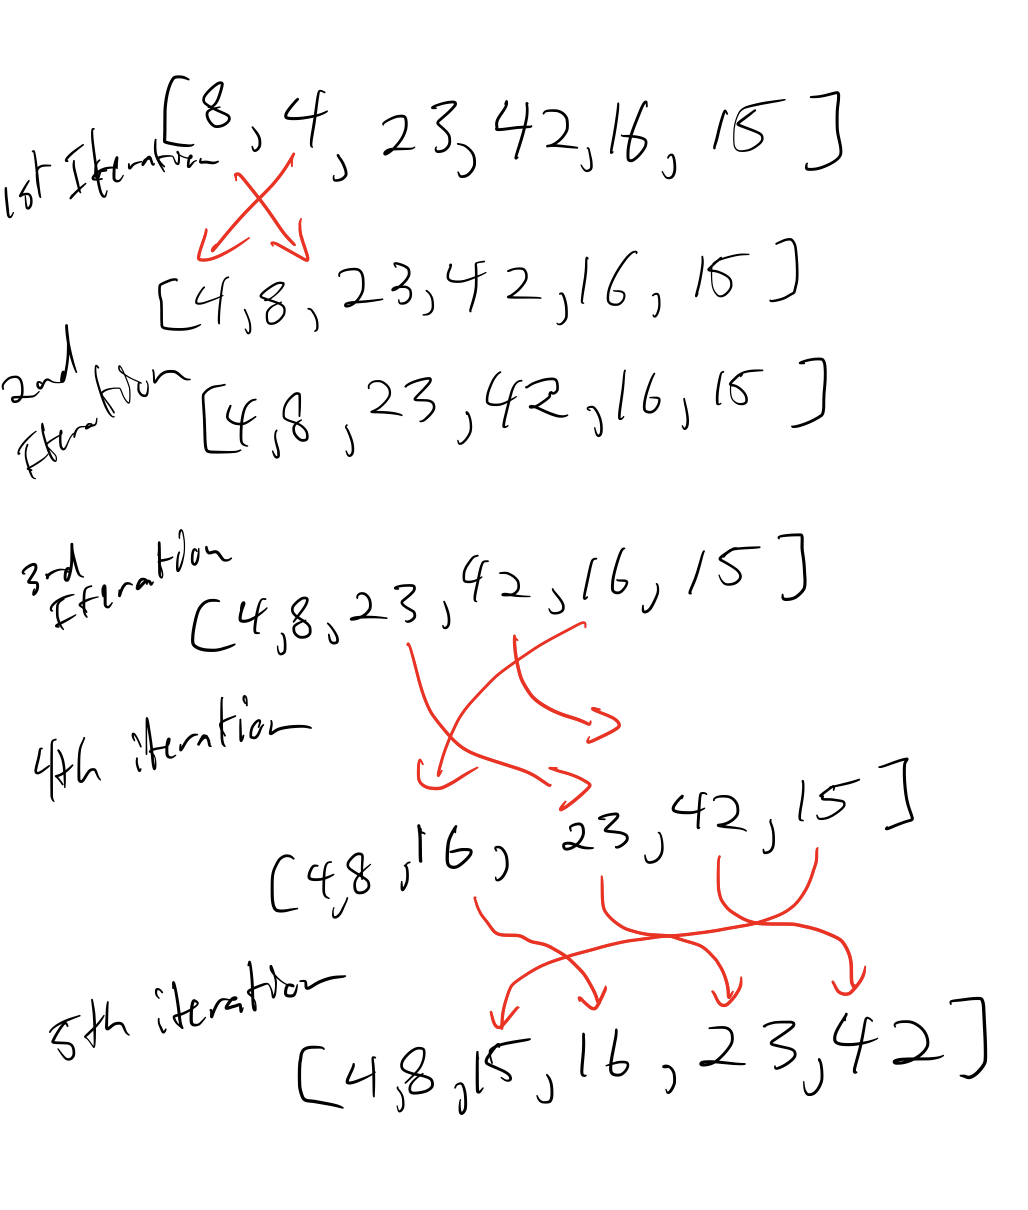 [8, 4, 23, 42, 16, 15]
1st Iteration
[4, 8, 23, 42, 16, 15]
2nd
Iteration
[4, 8, 23, 42, 16, 15]
3rd
Iteration
[4, 8, 23, 42, 16, 15]
4th iteration
[4, 8, 16, 23, 42, 15]
5th iteration
[4, 8, 15, 16, 23, 42]